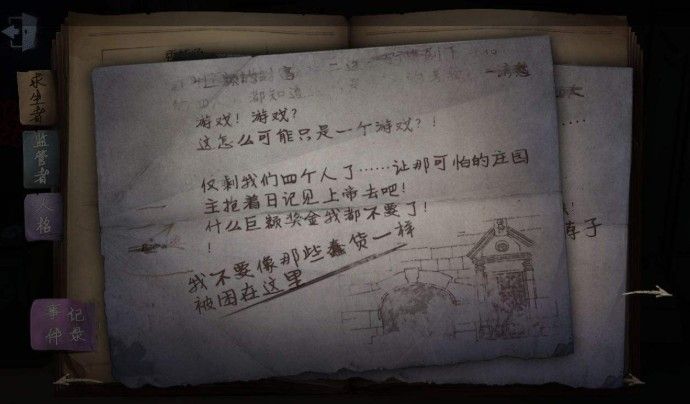 都知道
游戏！游戏？
这怎么可能只是一个游戏？！
仅剩我们四个人了……让那可怕的庄园
主抱着日记见上帝去吧！
什么巨额奖金我都不要了！
！
我不要像那些蠢货一样
被困在这里
求生者
监管者
人格
事件
记录